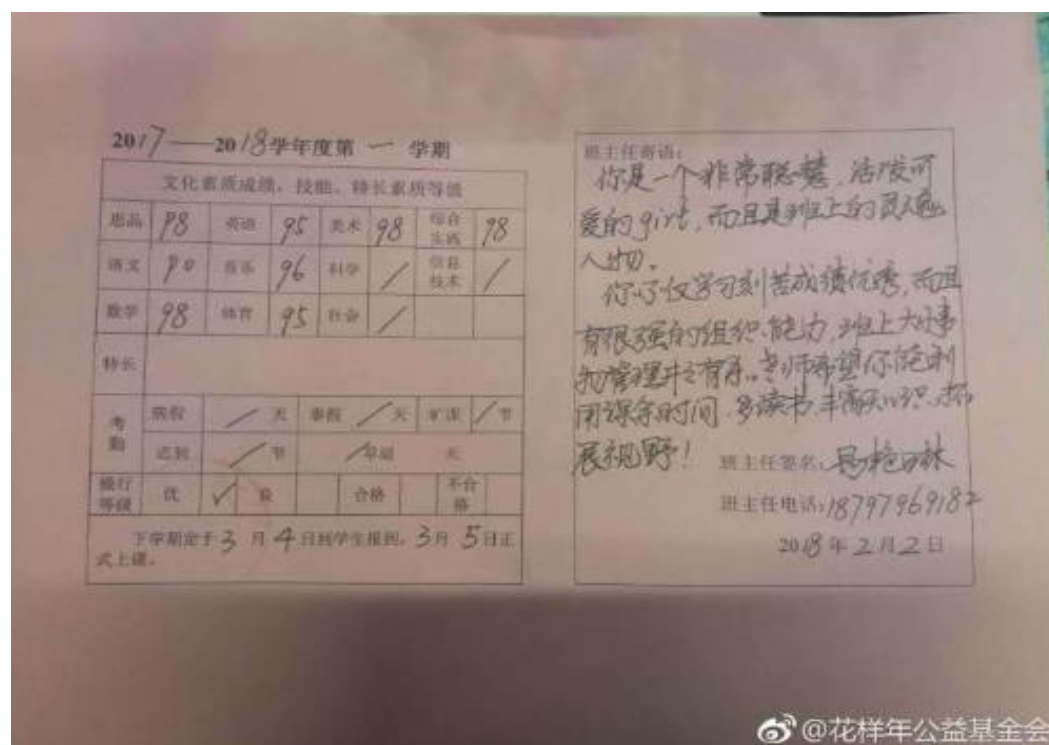 2017——2018学年度第一学期
文化素质成绩、技能、特长素质等级
思品 98 英语 95 美术 98 综合实践 98
语文 90 音乐 96 科学 / 信息技术 /
数学 98 体育 95 社会 /
特长
考勤 病假 / 天 事假 / 天 旷课 / 节
迟到 / 节 / 早退 天
操行等级 优 ✓ 良 合格 不合格
下学期定于3月4日到学生报到,3月5日正
式上课。
班主任寄语:
你是一个非常聪慧、活泼可
爱的girl,而且是班上的灵魂
人物。
你不仅学习刻苦成绩优秀,而且
有很强的组织能力,班上大小事
物管理井井有条。老师希望你能利
用课余时间,多读书,丰富知识,拓
展视野!
班主任签名:
班主任电话:18797969182
2018年2月2日
@花样年公益基金会